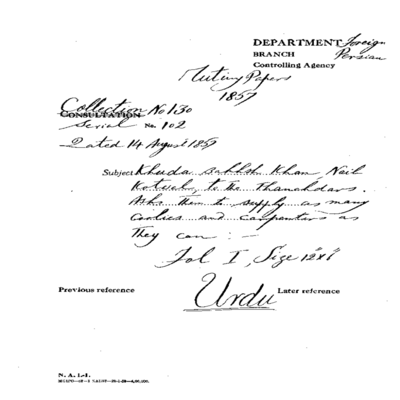 DEPARTMENT Foreign
BRANCH Persian
Controlling Agency
Mutiny Papers
1857
Collection No 130
CONSULTATION
Serial No. 102
Dated 14 August 1857
Subject Khuda Bakhsh Khan Naib
Kotwal, to the Thanahdars.
Asks them to supply as many
coolies and carpenters as
they can :—
Fol I, Size 12"x7"
Previous reference
Urdu
Later reference
N. A. I.-1.